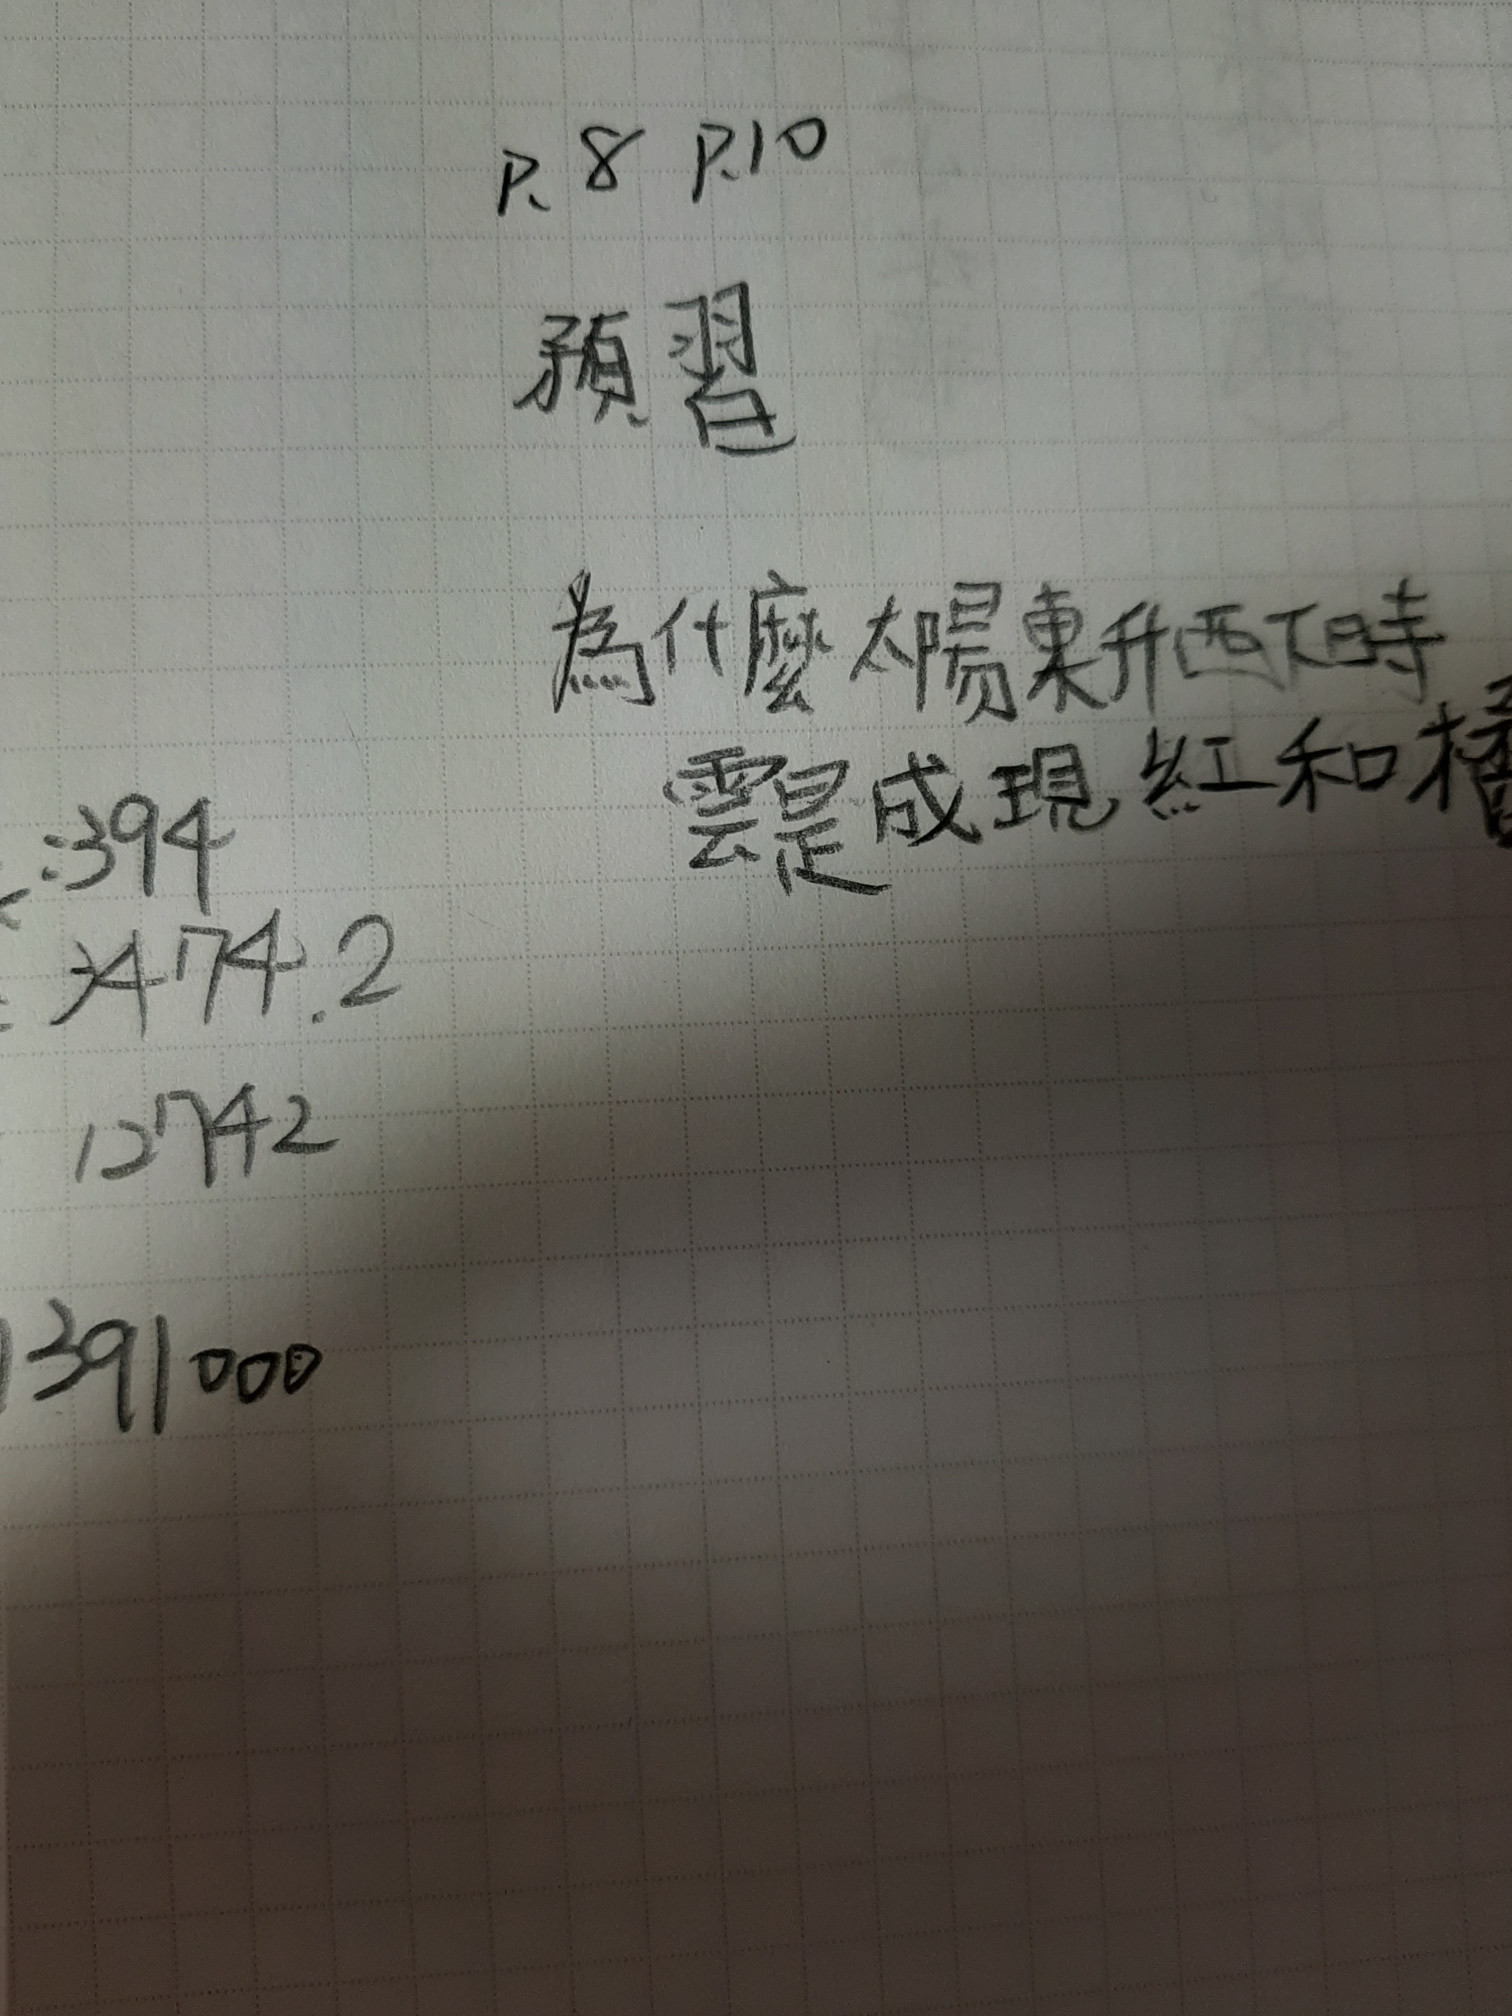 P.8 P.10
預習
為什麼太陽東升西下時
雲是成現紅和橘
:394
3474.2
12742
1391000